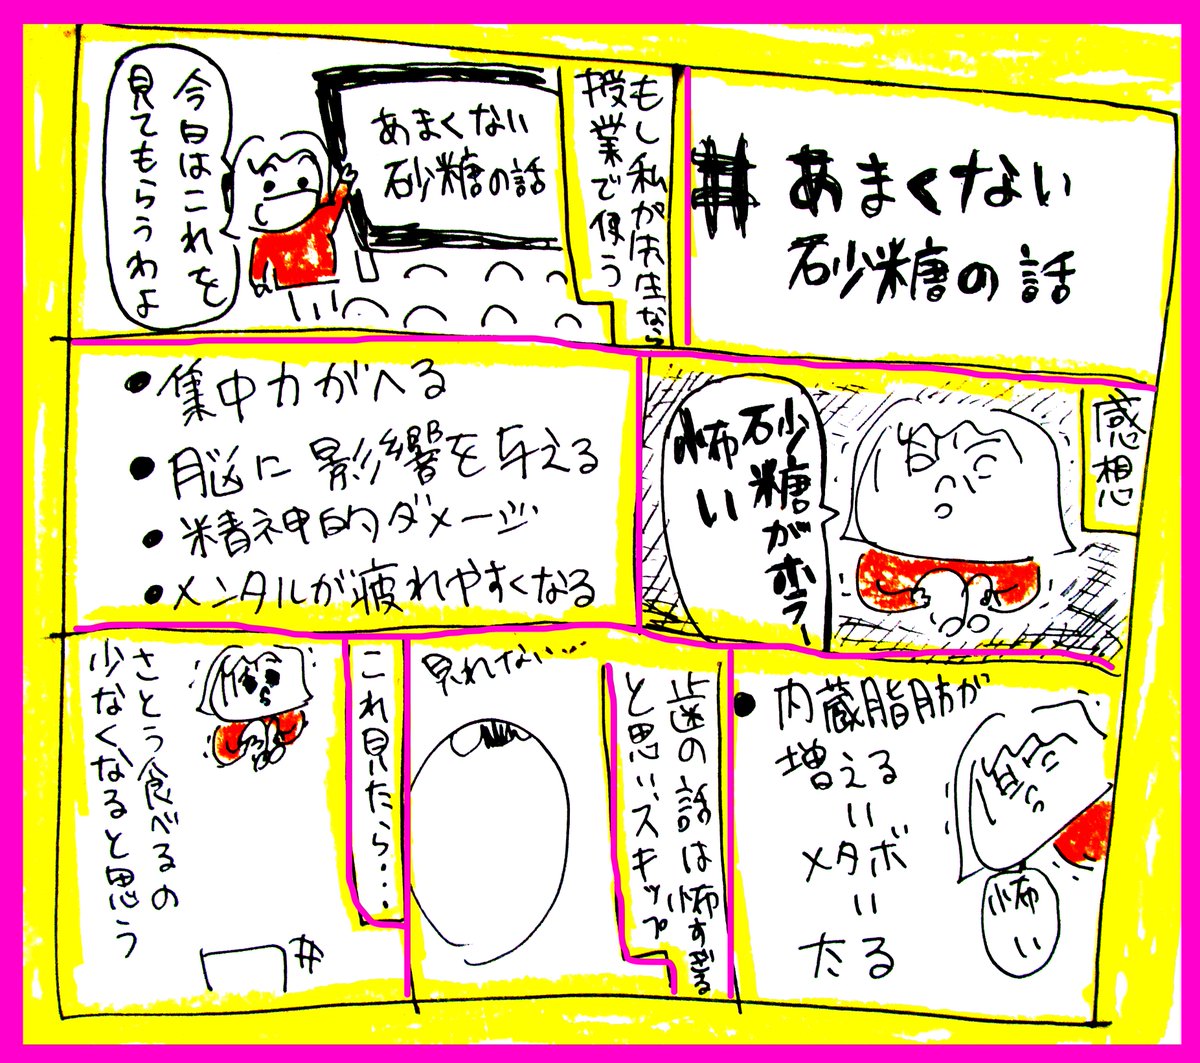 # あまくない
砂糖の話
もし私が先生なら
授業で使う
あまくない
砂糖の話
今日はこれを
見てもらうわよ
感想
砂糖がホラー
怖い
●集中力がへる
●脳に影響を与える
●精神的ダメージ
●メンタルが疲れやすくなる
●内蔵脂肪が
増える
||
メタボ
||
太る
怖い
歯の話は怖すぎる
と思いスキップ
見れない…
これ見たら・・・
さとう食べるの
少なくなると思う
#